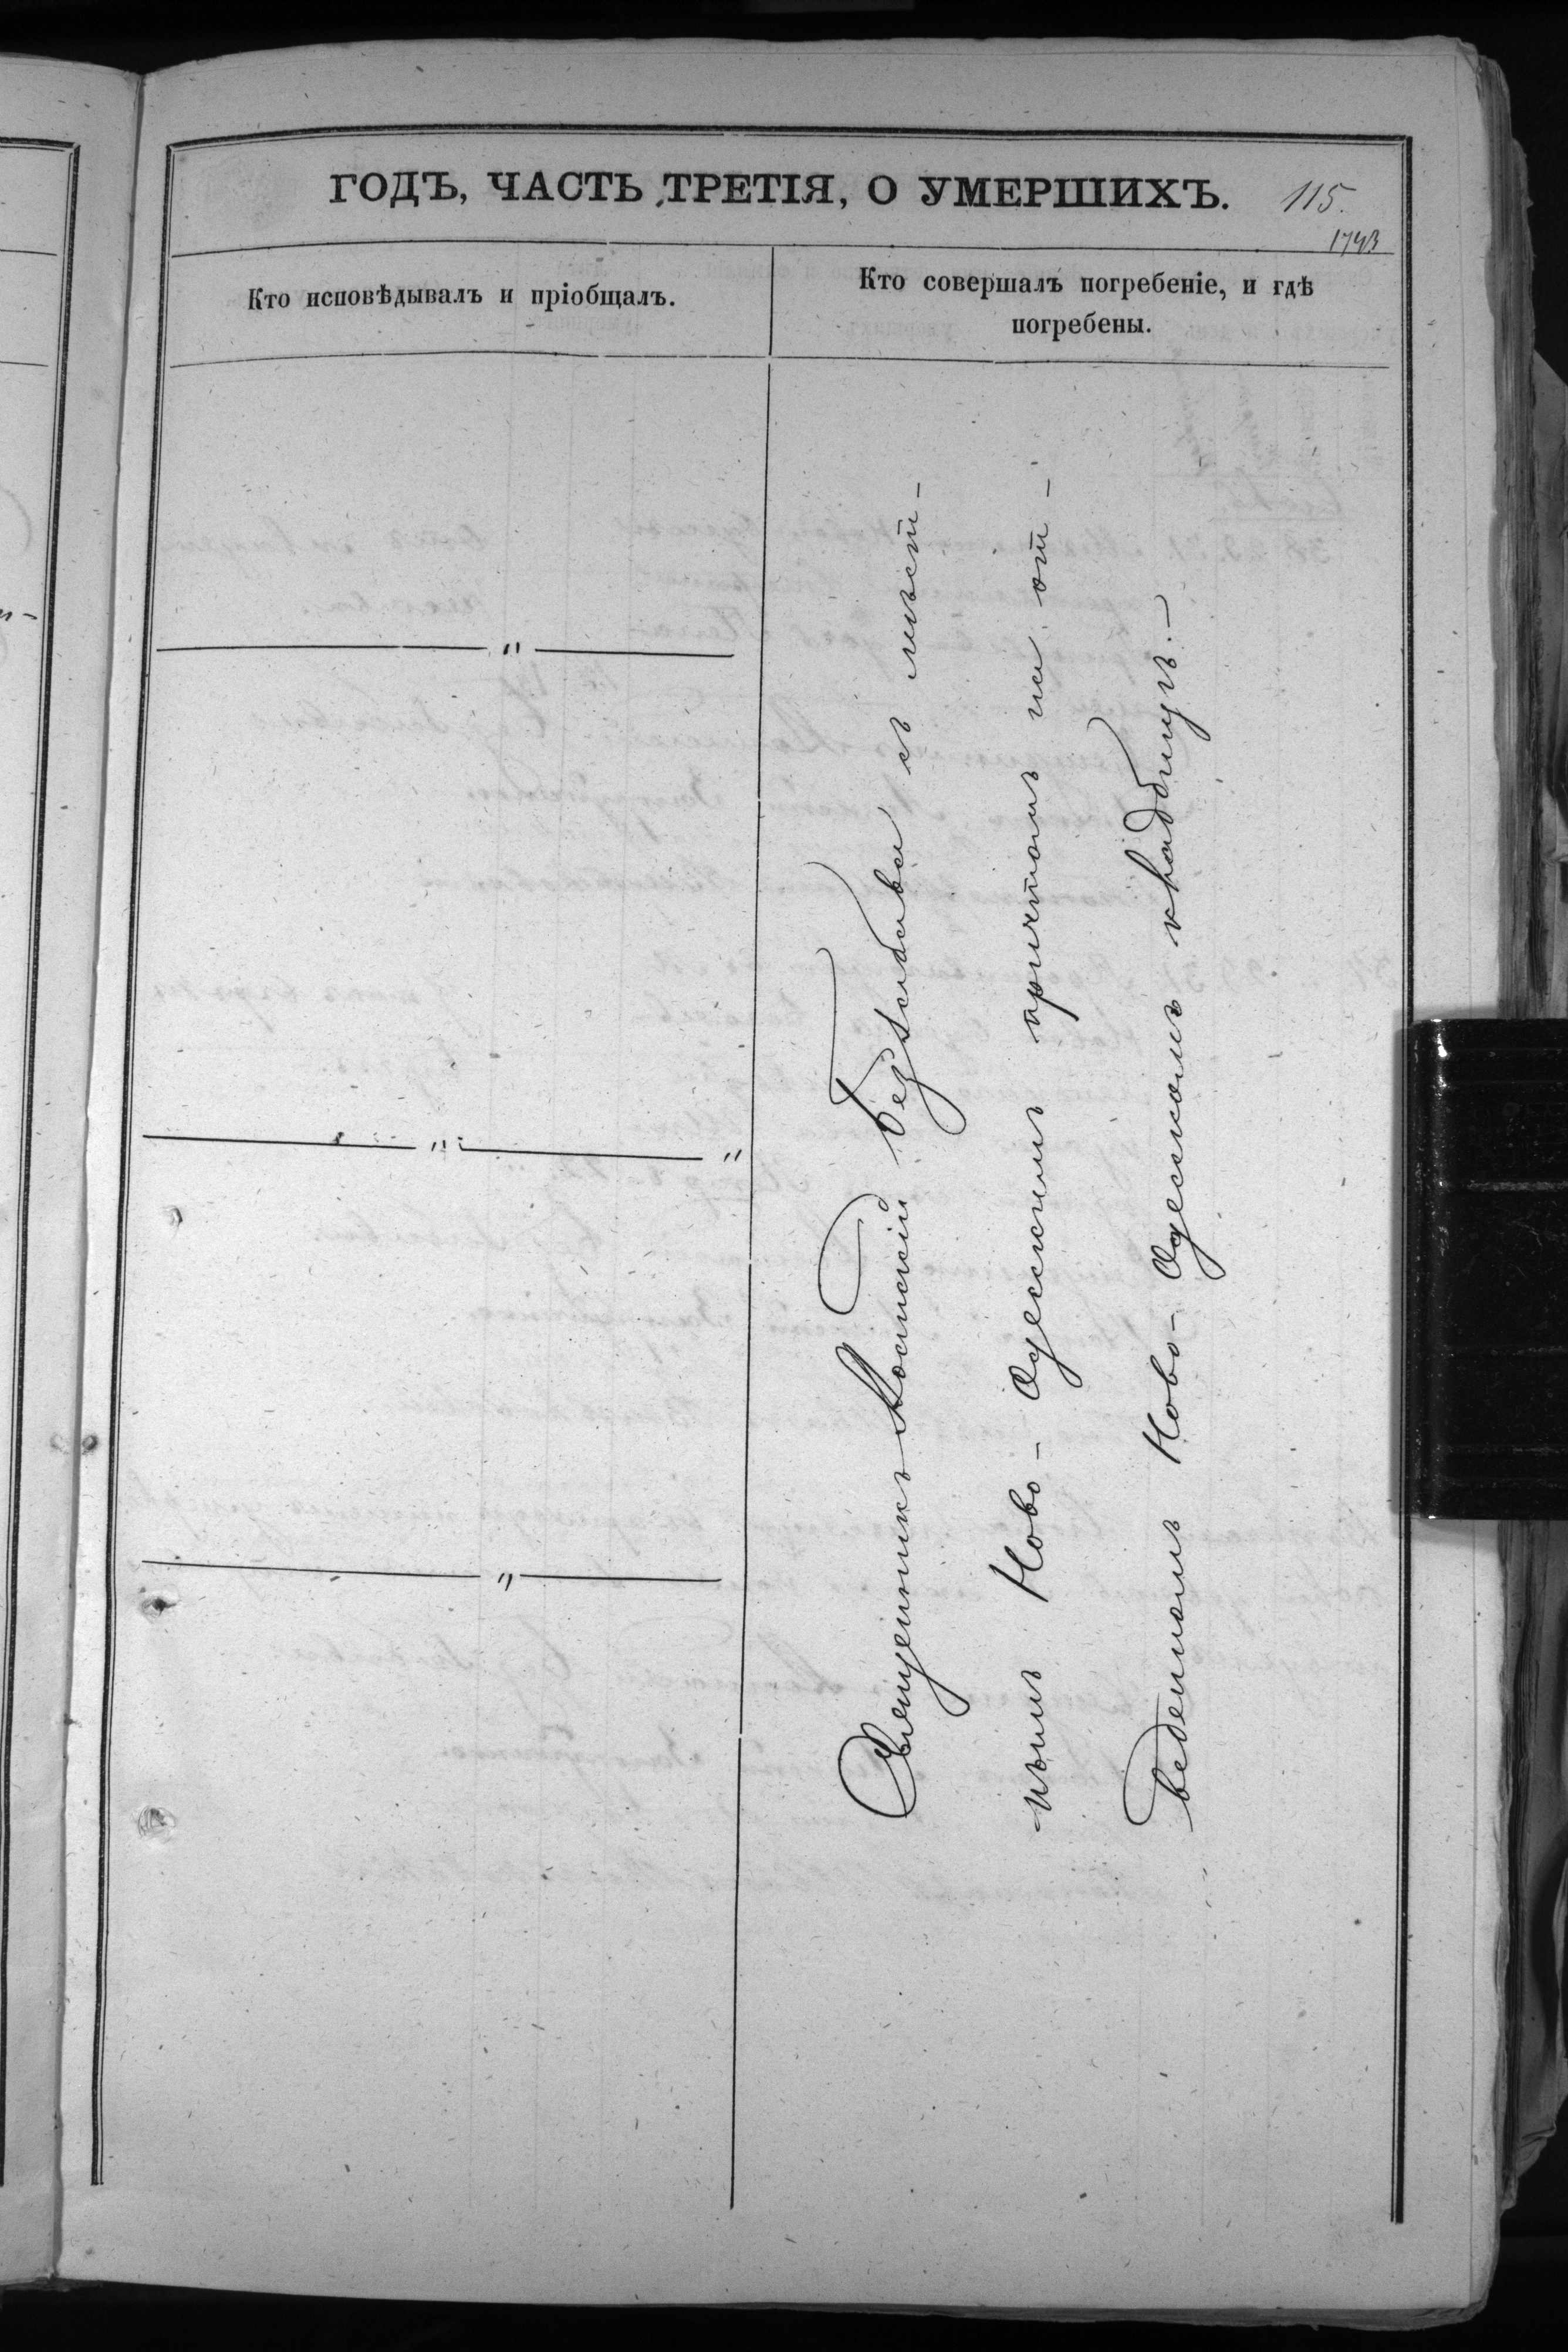 ГОДЪ, ЧАСТЬ ТРЕТІЯ, О УМЕРШИХЪ.
115.
1743
Кто исповѣдывалъ и пріобщалъ.
Кто совершалъ погребеніе, и гдѣ
погребены.
"
" "
"
Священникъ Безхлѣбовъ съ мѣст-
нымъ Ново-Одесскимъ причтомъ на от-
веденномъ Ново-Одесскомъ кладбищѣ.-